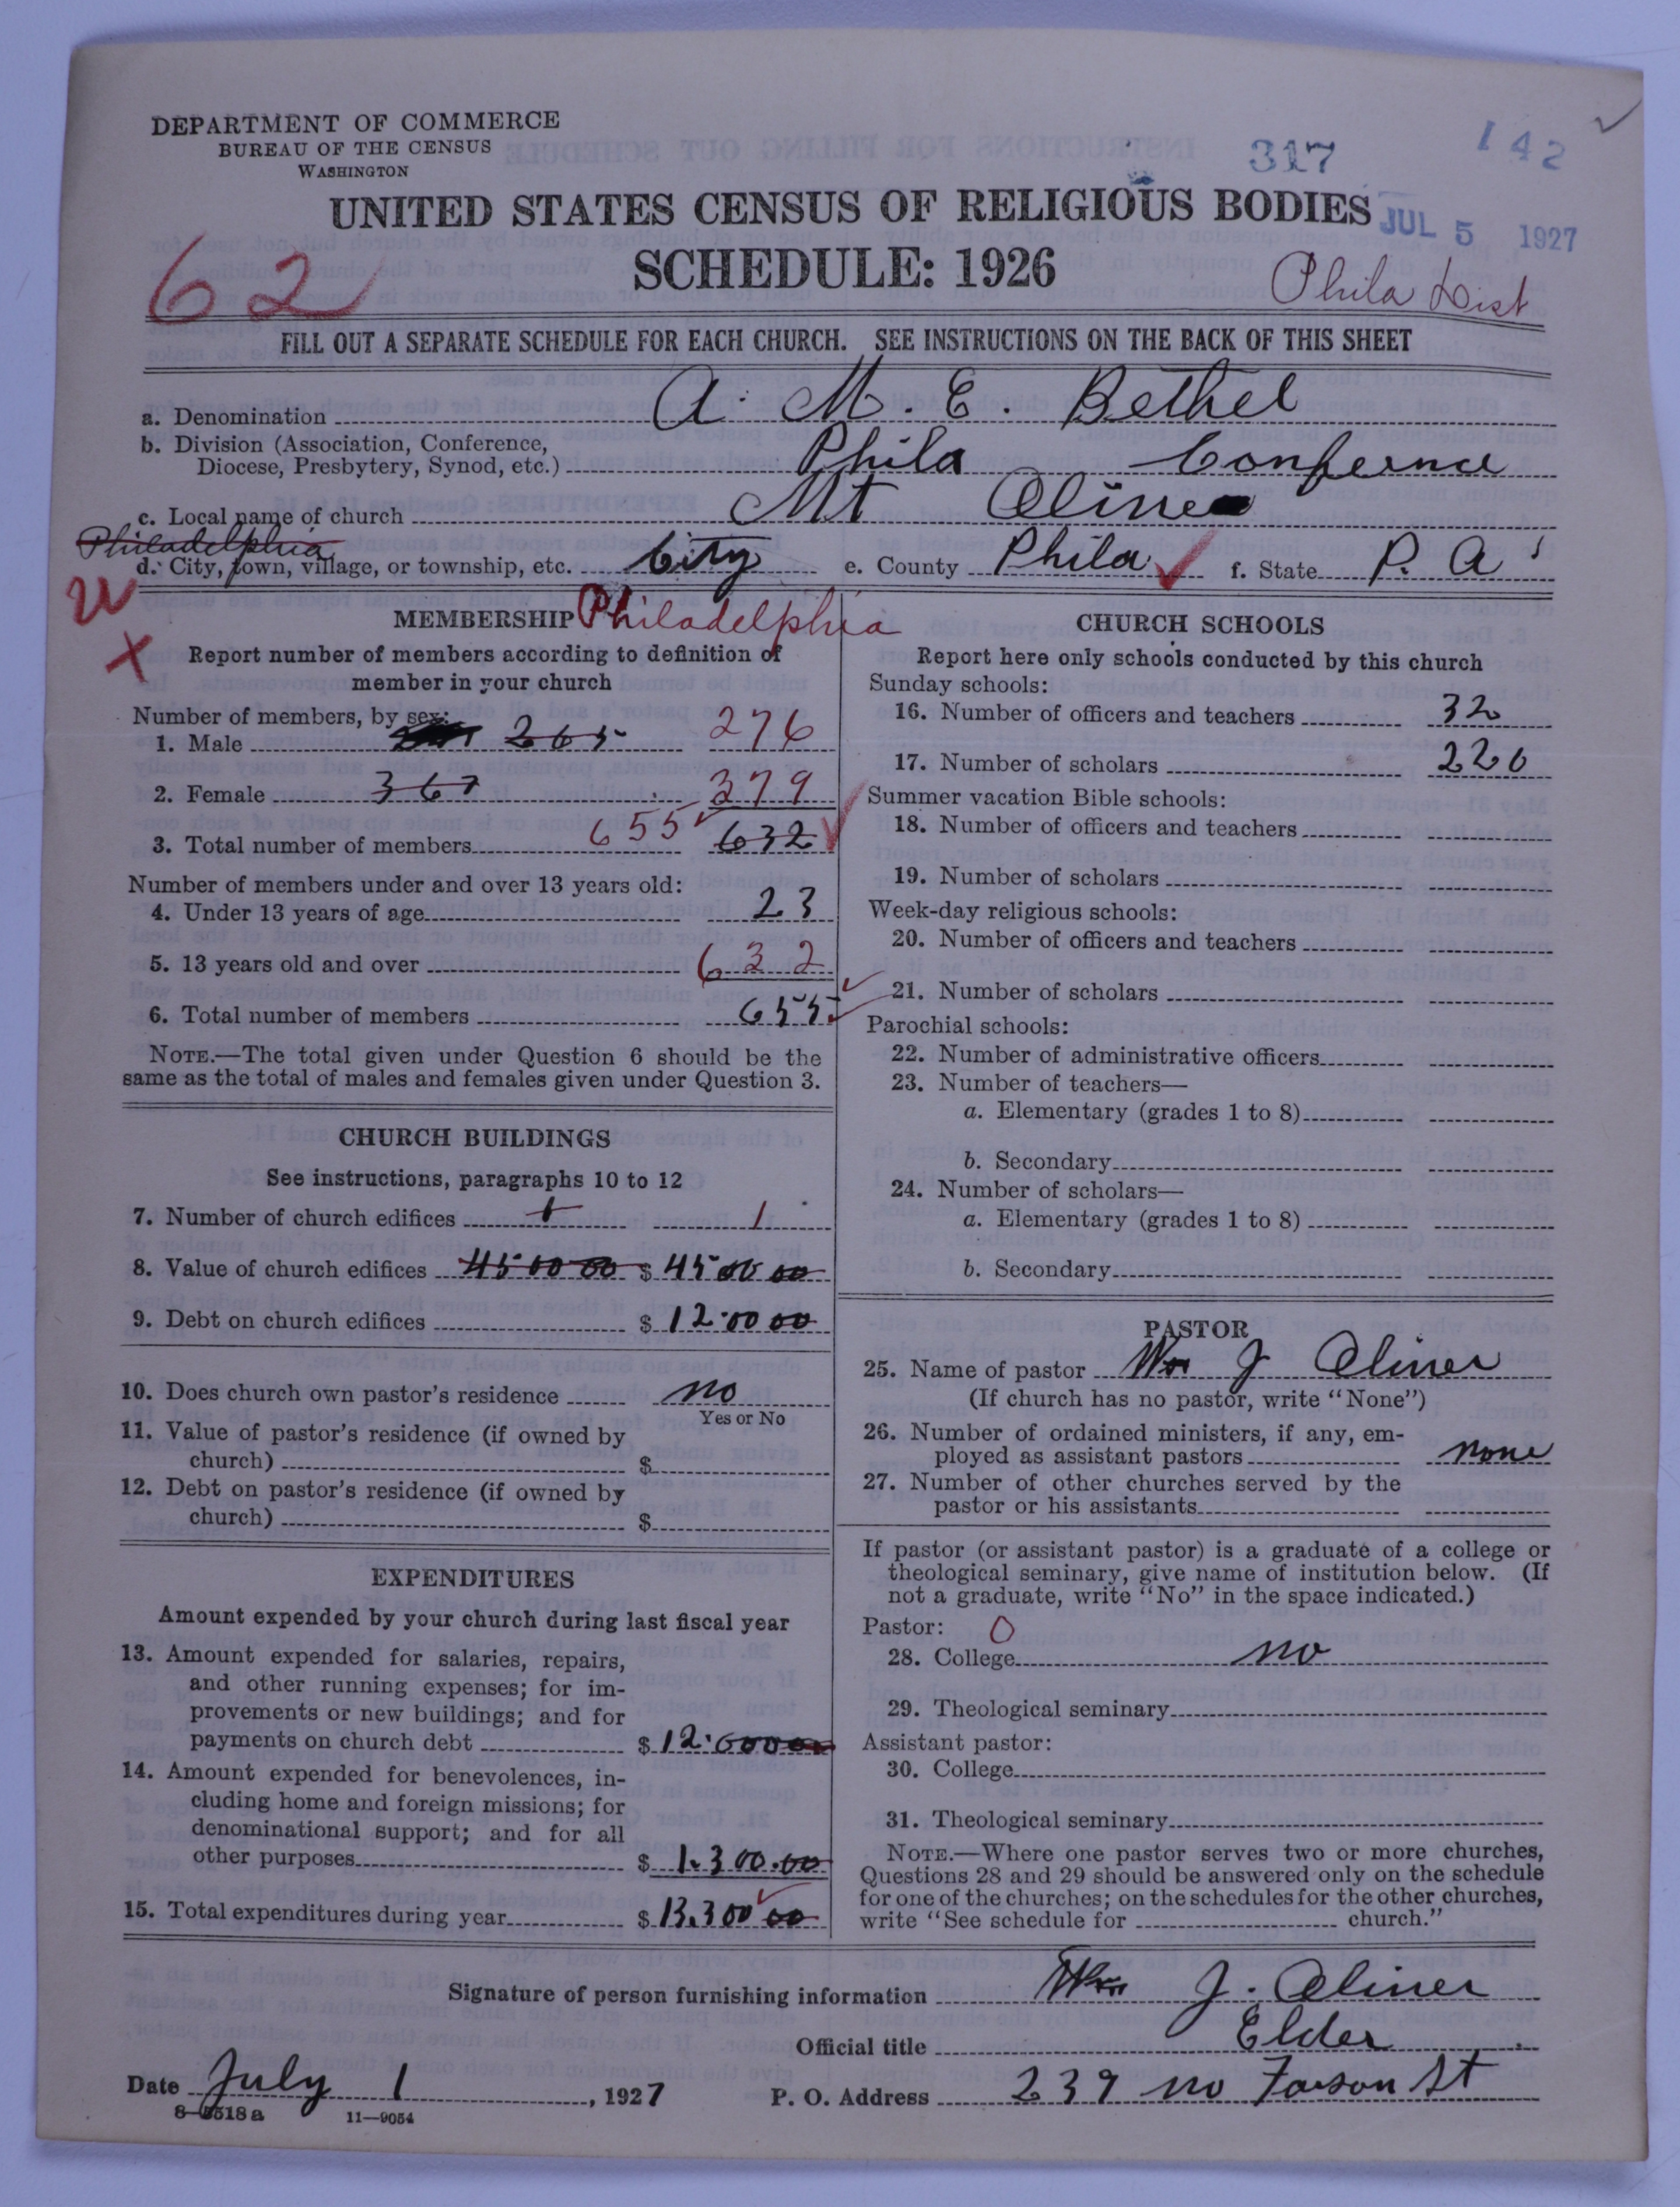 DEPARTMENT OF COMMERCE
BUREAU OF THE CENSUS
WASHINGTON
317
142
UNITED STATES CENSUS OF RELIGIOUS BODIES
JUL 5 1927
SCHEDULE: 1926
62
Phila Dist
FILL OUT A SEPARATE SCHEDULE FOR EACH CHURCH. SEE INSTRUCTIONS ON THE BACK OF THIS SHEET
a. Denomination A. M. E. Bethel
b. Division (Association, Conference,
Diocese, Presbytery, Synod, etc.) Phila Confernce
c. Local name of church Mt Olive
Philadelphia
d. City, town, village, or township, etc. City e. County Phila f. State P. A
MEMBERSHIP Philadelphia
X
Report number of members according to definition of
member in your church
Number of members, by sex:
1. Male 265 276
2. Female 367 379
3. Total number of members 655 632
Number of members under and over 13 years old:
4. Under 13 years of age 23
5. 13 years old and over 632
6. Total number of members 655
NOTE.—The total given under Question 6 should be the
same as the total of males and females given under Question 3.
CHURCH BUILDINGS
See instructions, paragraphs 10 to 12
7. Number of church edifices 1 1
8. Value of church edifices 4500000 $ 4500000
9. Debt on church edifices $ 12.0000
10. Does church own pastor's residence no
Yes or No
11. Value of pastor's residence (if owned by
church) $
12. Debt on pastor's residence (if owned by
church) $
EXPENDITURES
Amount expended by your church during last fiscal year
13. Amount expended for salaries, repairs,
and other running expenses; for im-
provements or new buildings; and for
payments on church debt $ 12.00000
14. Amount expended for benevolences, in-
cluding home and foreign missions; for
denominational support; and for all
other purposes $ 1.300.00
15. Total expenditures during year $ 13.30000
CHURCH SCHOOLS
Report here only schools conducted by this church
Sunday schools:
16. Number of officers and teachers 32
17. Number of scholars 220
Summer vacation Bible schools:
18. Number of officers and teachers
19. Number of scholars
Week-day religious schools:
20. Number of officers and teachers
21. Number of scholars
Parochial schools:
22. Number of administrative officers
23. Number of teachers—
a. Elementary (grades 1 to 8)
b. Secondary
24. Number of scholars—
a. Elementary (grades 1 to 8)
b. Secondary
PASTOR
25. Name of pastor Wm J Oliver
(If church has no pastor, write "None")
26. Number of ordained ministers, if any, em-
ployed as assistant pastors none
27. Number of other churches served by the
pastor or his assistants
If pastor (or assistant pastor) is a graduate of a college or
theological seminary, give name of institution below. (If
not a graduate, write "No" in the space indicated.)
Pastor: 0
28. College no
29. Theological seminary
Assistant pastor:
30. College
31. Theological seminary
NOTE.—Where one pastor serves two or more churches,
Questions 28 and 29 should be answered only on the schedule
for one of the churches; on the schedules for the other churches,
write "See schedule for church."
Signature of person furnishing information Wm J. Oliver
Official title Elder
Date July 1, 1927 P. O. Address 239 no Farson St
8—5518 a 11—9054